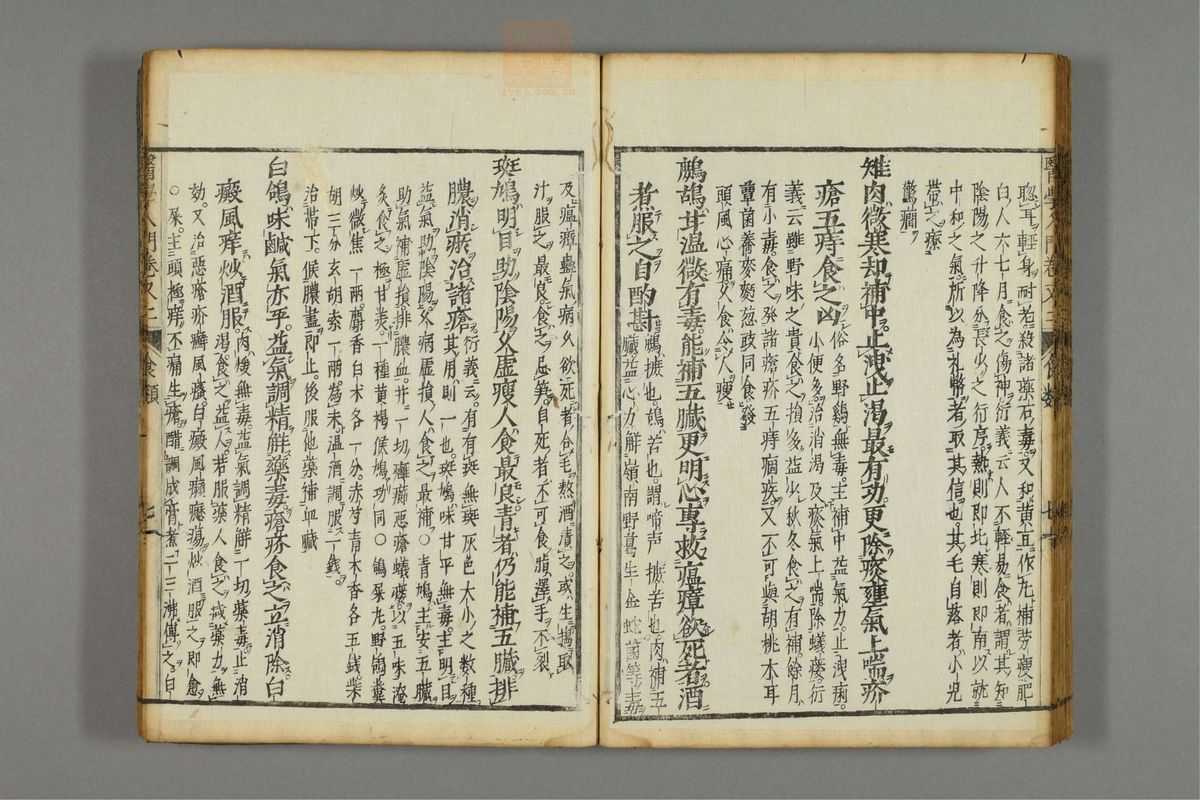 聰耳輕身耐老殺諸藥石毒又和黃豆作丸補勞瘦肥
白人六七月食之傷神衍義云人不輕易食者謂其知
陰陽之升降分長少之行序熱則即北寒則即南以就
中和之氣所以為礼幣者取其信也其毛自落者小児
帶之療
驚癇
雉肉微寒却補中止洩止渴最有功更除痰壅氣上喘疥
瘡五痔食之凶俗名野鷄無毒主補中益氣力止洩痢
小便多治消渴及痰氣上喘除蟻瘻衍
義云雖野味之貴食之損多益少秋冬食之有補餘月
有小毒食之發諸瘡疥五痔痼疾又不可與胡桃木耳
蕈菌蕎麥麪葱豉同食發
頭風心痛久食令人瘦
鷓鴣甘温微有毒能補五臟更明心專救瘟瘴欲死者酒
煮服之自酌斟鷓摭也鴣苦也謂啼声摭苦也肉補五
臟益心力解嶺南野葛生金蛇菌等毒
及瘟瘴蠱氣病欠欲死者合毛熬酒漬之或生搗取
汁服之最良食之忌笋自死者不可食脂澤手不裂
斑鳩明目助陰陽久虛瘦人食最良青者仍能補五臟排
膿消瘀治諸瘡衍義云有有斑無斑灰色大小之数種
其用則一也斑鳩味甘平無毒主明目
益氣助陰陽久病虛損人食之最補○青鳩主安五臟
助氣補虛損排膿血并一切癰癤惡瘡蟻瘻以五味淹
炙食之極甘美一種黃褐侯鳩功同○鴿屎丸野鴿糞
炒微焦一兩麝香白朮各一分赤芍青木香各五錢柴
胡三分玄胡索一兩為末温酒調服一錢
治帶下候膿盡即止後服他藥補血臟
白鴿味鹹氣亦平益氣調精解藥毒瘡疥食之立消除白
癜風痒炒酒服肉煖無毒益氣調精解一切藥毒止消
渴食之益人若服藥人食之減藥力無
効又治惡瘡疥癬風瘙白癜風癩瘍炒酒服之即愈
○屎主頭極痒不痛生瘡醋調成膏煮二三沸傅之白
醫學入門卷又二
食類